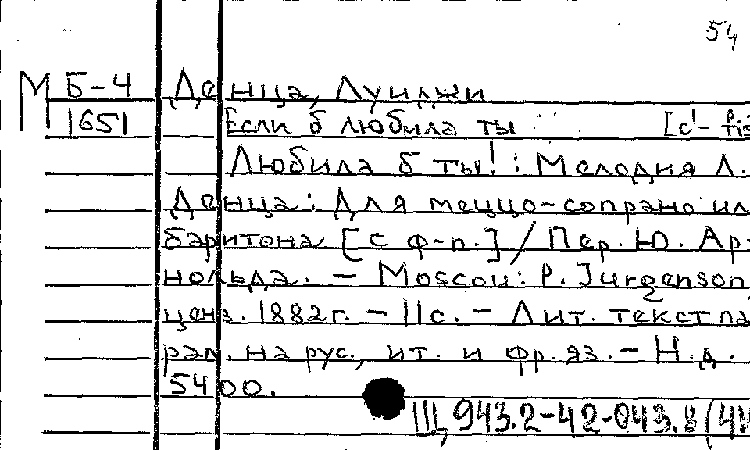 54
М Б-4 Денца, Луиджи
1651 Если б любила ты
Любила б ты! : Мелодия Л.
Денца : Для меццо-сопрано ил
баритона [с ф-п.] / Пер. Ю. Ар-
нольда. – Moscou : P. Jurgenson
ценз. 1882г. – 11с. – Лит. текст па
рал. на рус., ит. и фр. яз. – Н.д.
5400.
Щ 943.2-42-043.8